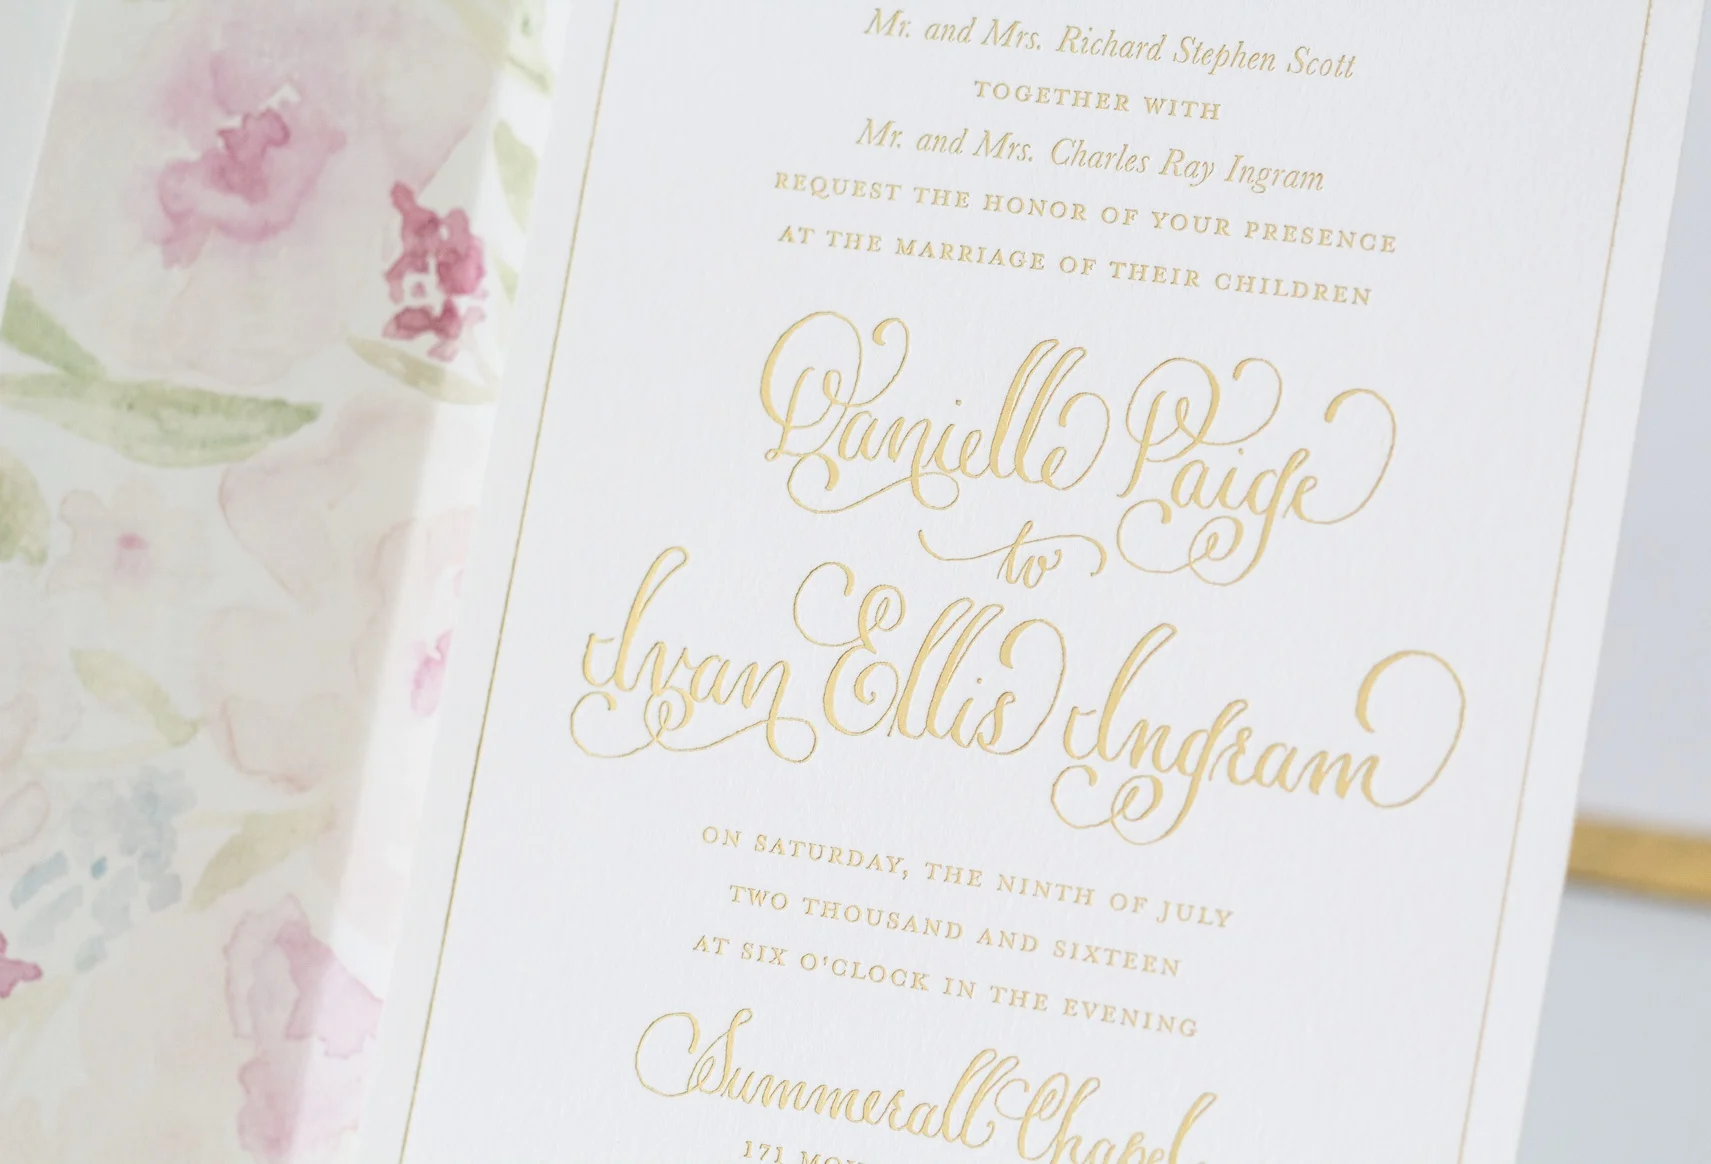 Mr. and Mrs. Richard Stephen Scott
TOGETHER WITH
Mr. and Mrs. Charles Ray Ingram
REQUEST THE HONOR OF YOUR PRESENCE
AT THE MARRIAGE OF THEIR CHILDREN
Danielle Paige
to
Ivan Ellis Ingram
ON SATURDAY, THE NINTH OF JULY
TWO THOUSAND AND SIXTEEN
AT SIX O'CLOCK IN THE EVENING
Summerall Chapel
171